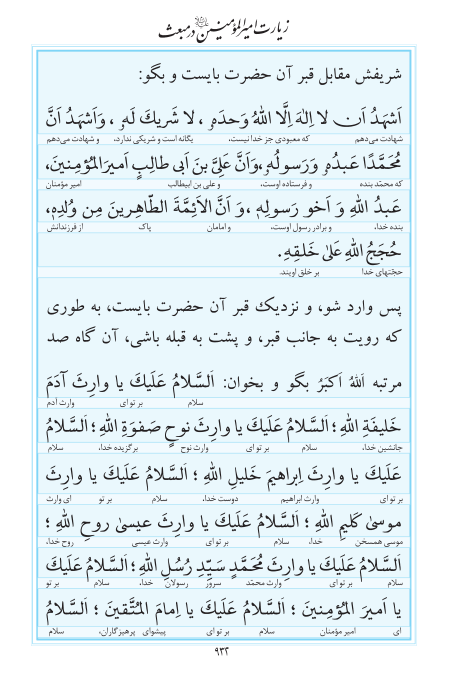 زیارت امیرالمؤمنین در مبعث
شریفش مقابل قبر آن حضرت بایست و بگو:
اَشهَدُ اَن لا اِلٰهَ اِلَّا اللهُ وَحدَهٗ ، لا شَریكَ لَهٗ ، وَاَشهَدُ اَنَّ
شهادت می‌دهم که معبودی جز خدا نیست، یگانه است و شریکی ندارد، و شهادت می‌دهم
مُحَمَّدًا عَبدُهٗ وَرَسولُهٗ ،وَاَنَّ عَلِیَّ بنَ اَبی طالِبٍ اَمیرَالمُؤمِنینَ،
که محمّد بنده و فرستاده اوست، و علی بن ابیطالب امیر مؤمنان
عَبدُ اللهِ وَ اَخو رَسولِهٖ ،وَ اَنَّ الاَئِمَّةَ الطّاهِرینَ مِن وُلدِهٖ،
بنده خدا، و برادر رسول اوست، و امامان پاک از فرزندانش
حُجَجُ اللهِ عَلیٰ خَلقِهِ .
حجّتهای خدا بر خلق اویند.
پس وارد شو، و نزدیک قبر آن حضرت بایست، به طوری
که رویت به جانب قبر، و پشت به قبله باشی، آن گاه صد
مرتبه اَللهُ اَکبَرُ بگو و بخوان: اَلسَّلامُ عَلَیكَ یا وارِثَ آدَمَ
سلام بر تو ای وارث آدم
خَلیفَةِ اللهِ ؛ اَلسَّلامُ عَلَیكَ یا وارِثَ نوحٍ صَفوَةِ اللهِ ؛ اَلسَّلامُ
جانشین خدا، سلام بر تو ای وارث نوح برگزیده خدا، سلام
عَلَیكَ یا وارِثَ اِبراهیمَ خَلیلِ اللهِ ؛ اَلسَّلامُ عَلَیكَ یا وارِثَ
بر تو ای وارث ابراهیم دوست خدا، سلام بر تو ای وارث
موسیٰ کَلیمِ اللهِ ؛ اَلسَّلامُ عَلَیكَ یا وارِثَ عیسیٰ روحِ اللهِ ؛
موسی همسخن خدا، سلام بر تو ای وارث عیسی روح خدا،
اَلسَّلامُ عَلَیكَ یا وارِثَ مُحَمَّدٍ سَیِّدِ رُسُلِ اللهِ؛ اَلسَّلامُ عَلَیكَ
سلام بر تو ای وارث محمّد سرور رسولان خدا، سلام بر تو
یا اَمیرَ المُؤمِنینَ ؛ اَلسَّلامُ عَلَیكَ یا اِمامَ المُتَّقینَ ؛ اَلسَّلامُ
ای امیر مؤمنان سلام بر تو ای پیشوای پرهیزگاران، سلام
۹۳۲